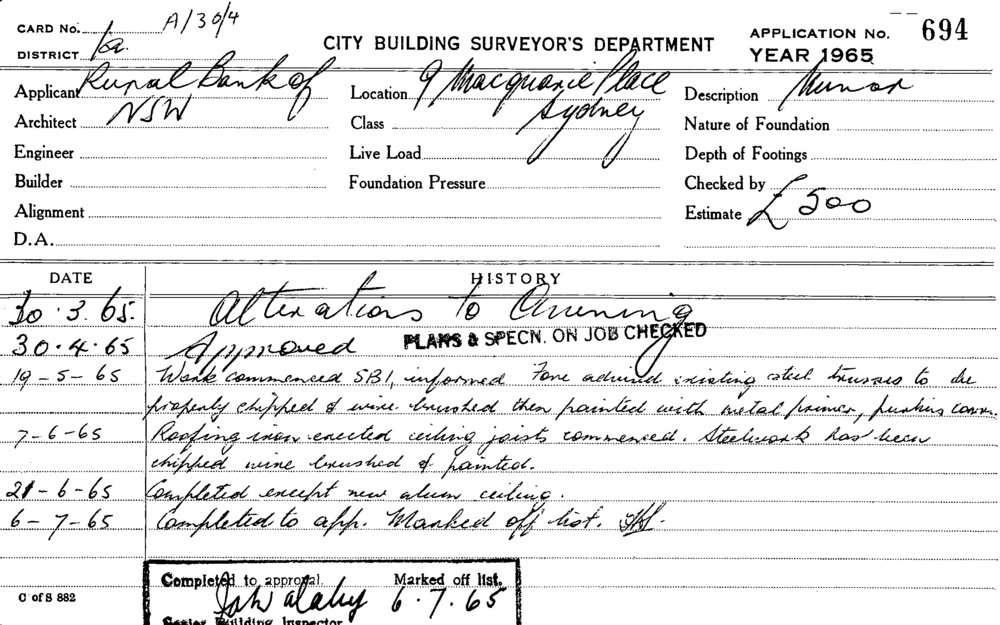 CARD No. A/30/4
DISTRICT 1a.
CITY BUILDING SURVEYOR'S DEPARTMENT
APPLICATION No. 694
YEAR 1965
Applicant Rural Bank of
NSW
Location 9 Macquarie Place
Sydney
Description Minor
Architect
Class
Nature of Foundation
Engineer
Live Load
Depth of Footings
Builder
Foundation Pressure
Checked by
Alignment
Estimate £500
D.A.
DATE HISTORY
30.3.65. Alterations to Awning
PLANS & SPECN. ON JOB CHECKED
30.4.65 Approved
19-5-65 Work commenced SBI, informed advised existing steel trusses to be
properly chipped & wire brushed then painted with metal primer, purlins
7-6-65 Roofing iron erected ceiling joists commenced. Steelwork has been
chipped wire brushed & painted.
21-6-65 Completed except new alum ceiling.
6-7-65 Completed to app. Marked off list.
Completed to approval. Marked off list.
6.7.65
Senior Building Inspector
C of S 882